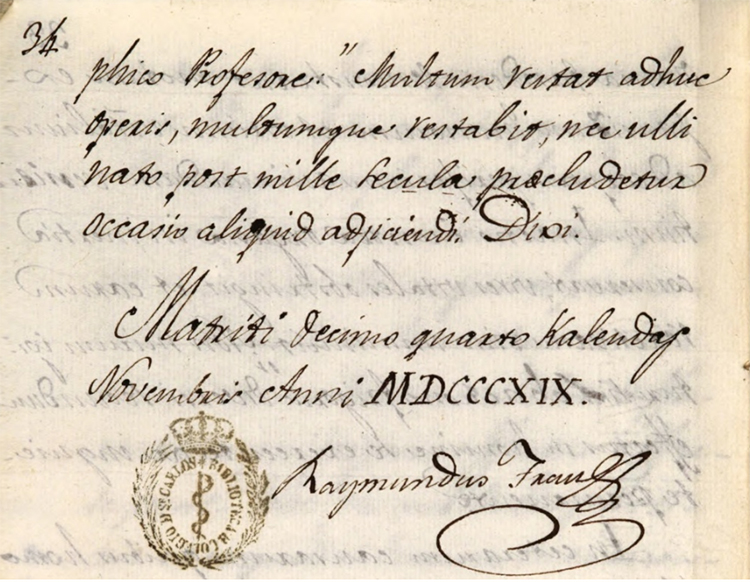 34
phico Profesore:" Multum restat adhuc
operis, multumque restabit, nec ulli
nato post mille secula præcludetur
occasio aliquid adjiciendi. Dixi.
Matriti decimo quarto Kalendas
Novembris Anni MDCCCXIX.
Raymundus Frau
BIBLIOTECA DEL COLEGIO DE Sn. CARLOS